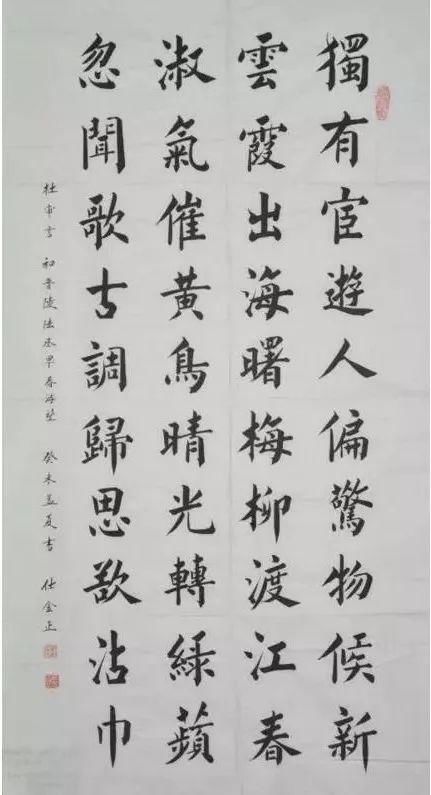 獨有宦遊人偏驚物候新
雲霞出海曙梅柳渡江春
淑氣催黃鳥晴光轉綠蘋
忽聞歌古調歸思欲沾巾
杜审言 和晋陵陸丞早春游望 癸未孟夏書 仕金正